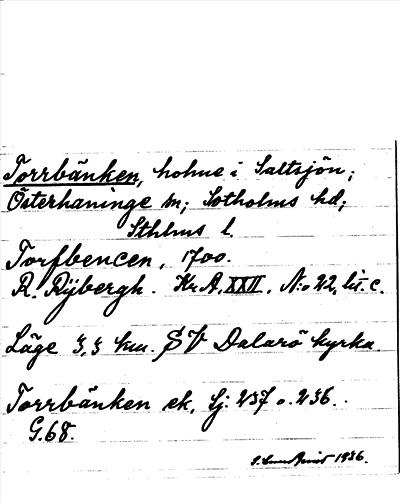 Torrbänken, holme i Saltsjön;
Österhaninge sn; Sotholms hd;
Sthlms l.
Torfbencen, 1700.
R. Rÿbergh. Kr. A. XXII, N:o 22, lit. c.
Läge 3,3 km. SV Dalarö kyrka
Torrbänken ek, Sj: 237 o. 236.
G. 68.
1936.